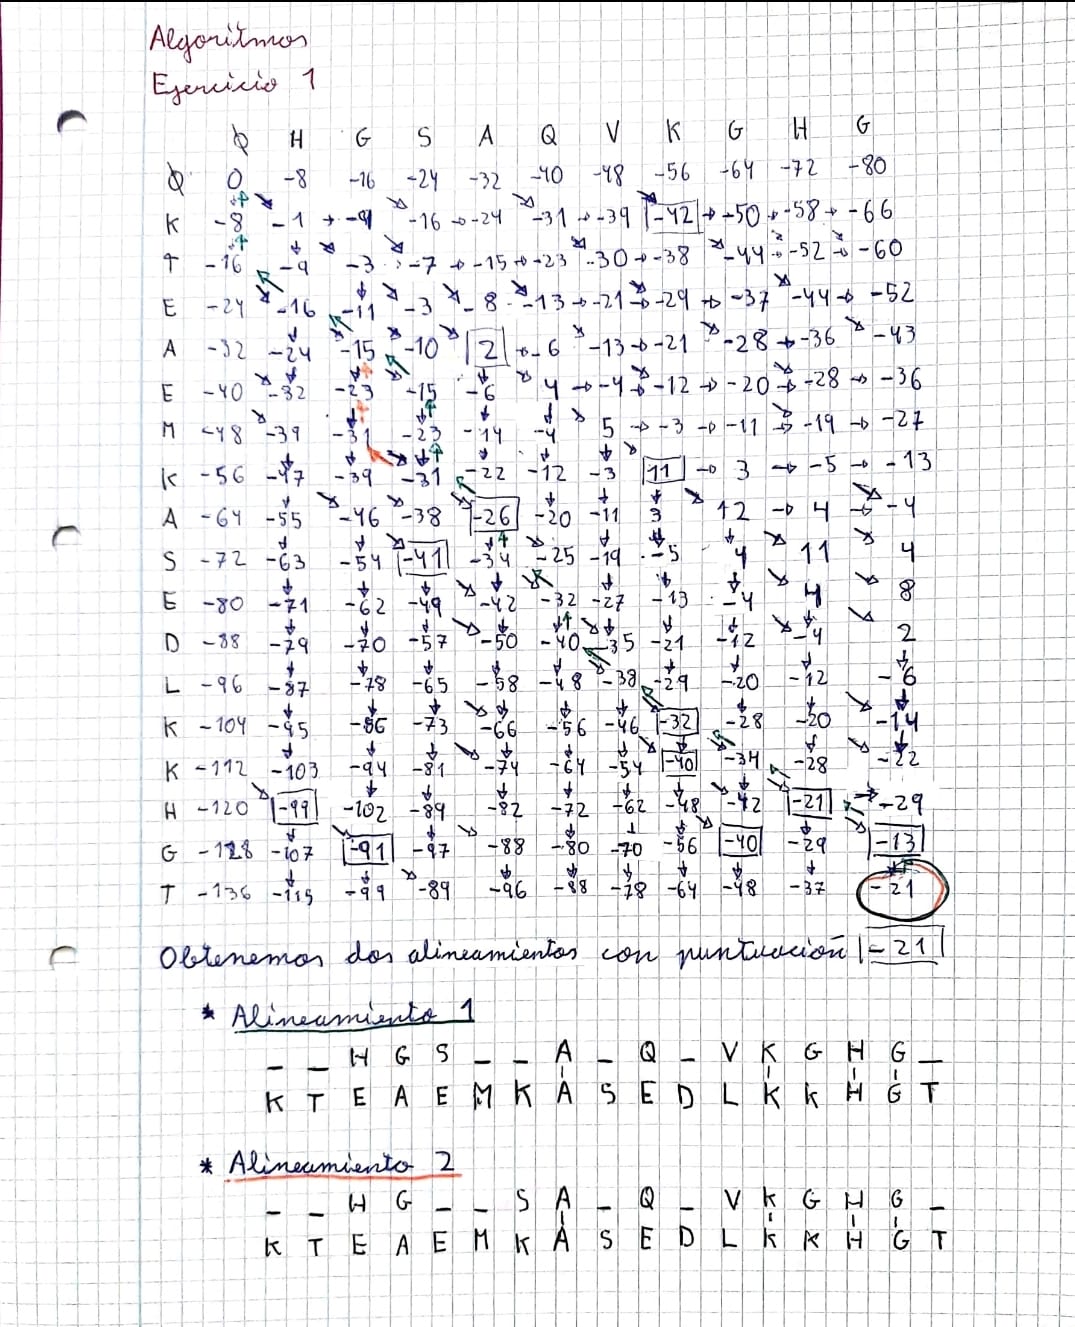 Algoritmos
Ejercicio 1
∅ H G S A Q V K G H G
∅ 0 -8 -16 -24 -32 -40 -48 -56 -64 -72 -80
K -8 -1 → -9 -16 → -24 -31 → -39 -42 → -50 → -58 → -66
T -16 -9 -3 -7 → -15 → -23 -30 → -38 -44 → -52 → -60
E -24 -16 -11 -3 -8 -13 → -21 → -29 → -37 -44 → -52
A -32 -24 -15 -10 2 → -6 -13 → -21 -28 → -36 -43
E -40 -32 -23 -15 -6 4 → -4 → -12 → -20 → -28 → -36
M -48 -39 -31 -23 -14 -4 5 → -3 → -11 → -19 → -27
K -56 -47 -39 -31 -22 -12 -3 11 → 3 → -5 → -13
A -64 -55 -46 -38 -26 -20 -11 3 12 → 4 → -4
S -72 -63 -54 -41 -34 -25 -19 -5 4 11 4
E -80 -71 -62 -49 -42 -32 -27 -13 -4 4 8
D -88 -79 -70 -57 -50 -40 -35 -21 -12 -4 2
L -96 -87 -78 -65 -58 -48 -38 -29 -20 -12 -6
K -104 -95 -86 -73 -66 -56 -46 -32 -28 -20 -14
K -112 -103 -94 -81 -74 -64 -54 -40 -34 -28 -22
H -120 -99 -102 -89 -82 -72 -62 -48 -42 -21 → -29
G -128 -107 -91 -97 -88 -80 -70 -56 -40 -29 -13
T -136 -115 -99 -89 -96 -88 -78 -64 -48 -37 -21
Obtenemos dos alineamientos con puntuación -21
* Alineamiento 1
_ _ H G S _ _ A _ Q _ V K G H G _
K T E A E M K A S E D L K K H G T
* Alineamiento 2
_ _ H G _ _ S A _ Q _ V K G H G _
K T E A E M K A S E D L K K H G T